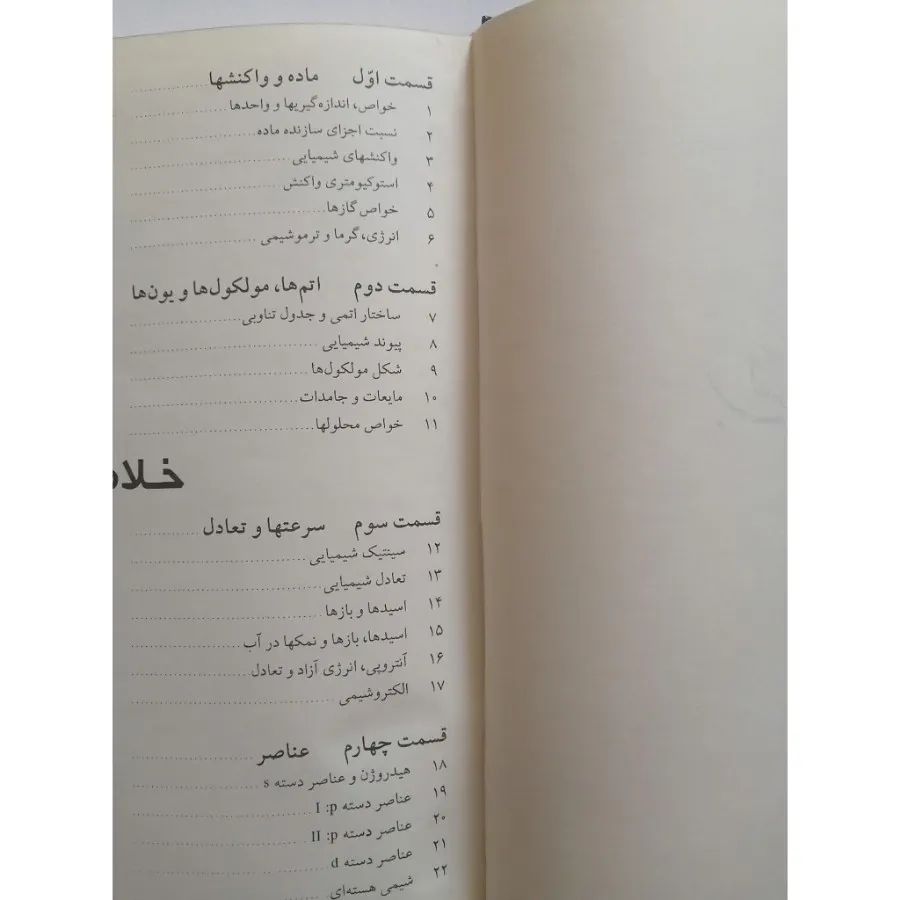 قسمت اوّل ماده و واکنشها
۱ خواص، اندازه‌گیریها و واحدها
۲ نسبت اجزای سازنده ماده
۳ واکنشهای شیمیایی
۴ استوکیومتری واکنش
۵ خواص گازها
۶ انرژی، گرما و ترموشیمی
قسمت دوم اتم‌ها، مولکول‌ها و یون‌ها
۷ ساختار اتمی و جدول تناوبی
۸ پیوند شیمیایی
۹ شکل مولکول‌ها
۱۰ مایعات و جامدات
۱۱ خواص محلولها
قسمت سوم سرعتها و تعادل
۱۲ سینتیک شیمیایی
۱۳ تعادل شیمیایی
۱۴ اسیدها و بازها
۱۵ اسیدها، بازها و نمکها در آب
۱۶ آنتروپی، انرژی آزاد و تعادل
۱۷ الکتروشیمی
قسمت چهارم عناصر
۱۸ هیدروژن و عناصر دسته s
۱۹ عناصر دسته p: I
۲۰ عناصر دسته p: II
۲۱ عناصر دسته d
۲۲ شیمی هسته‌ای